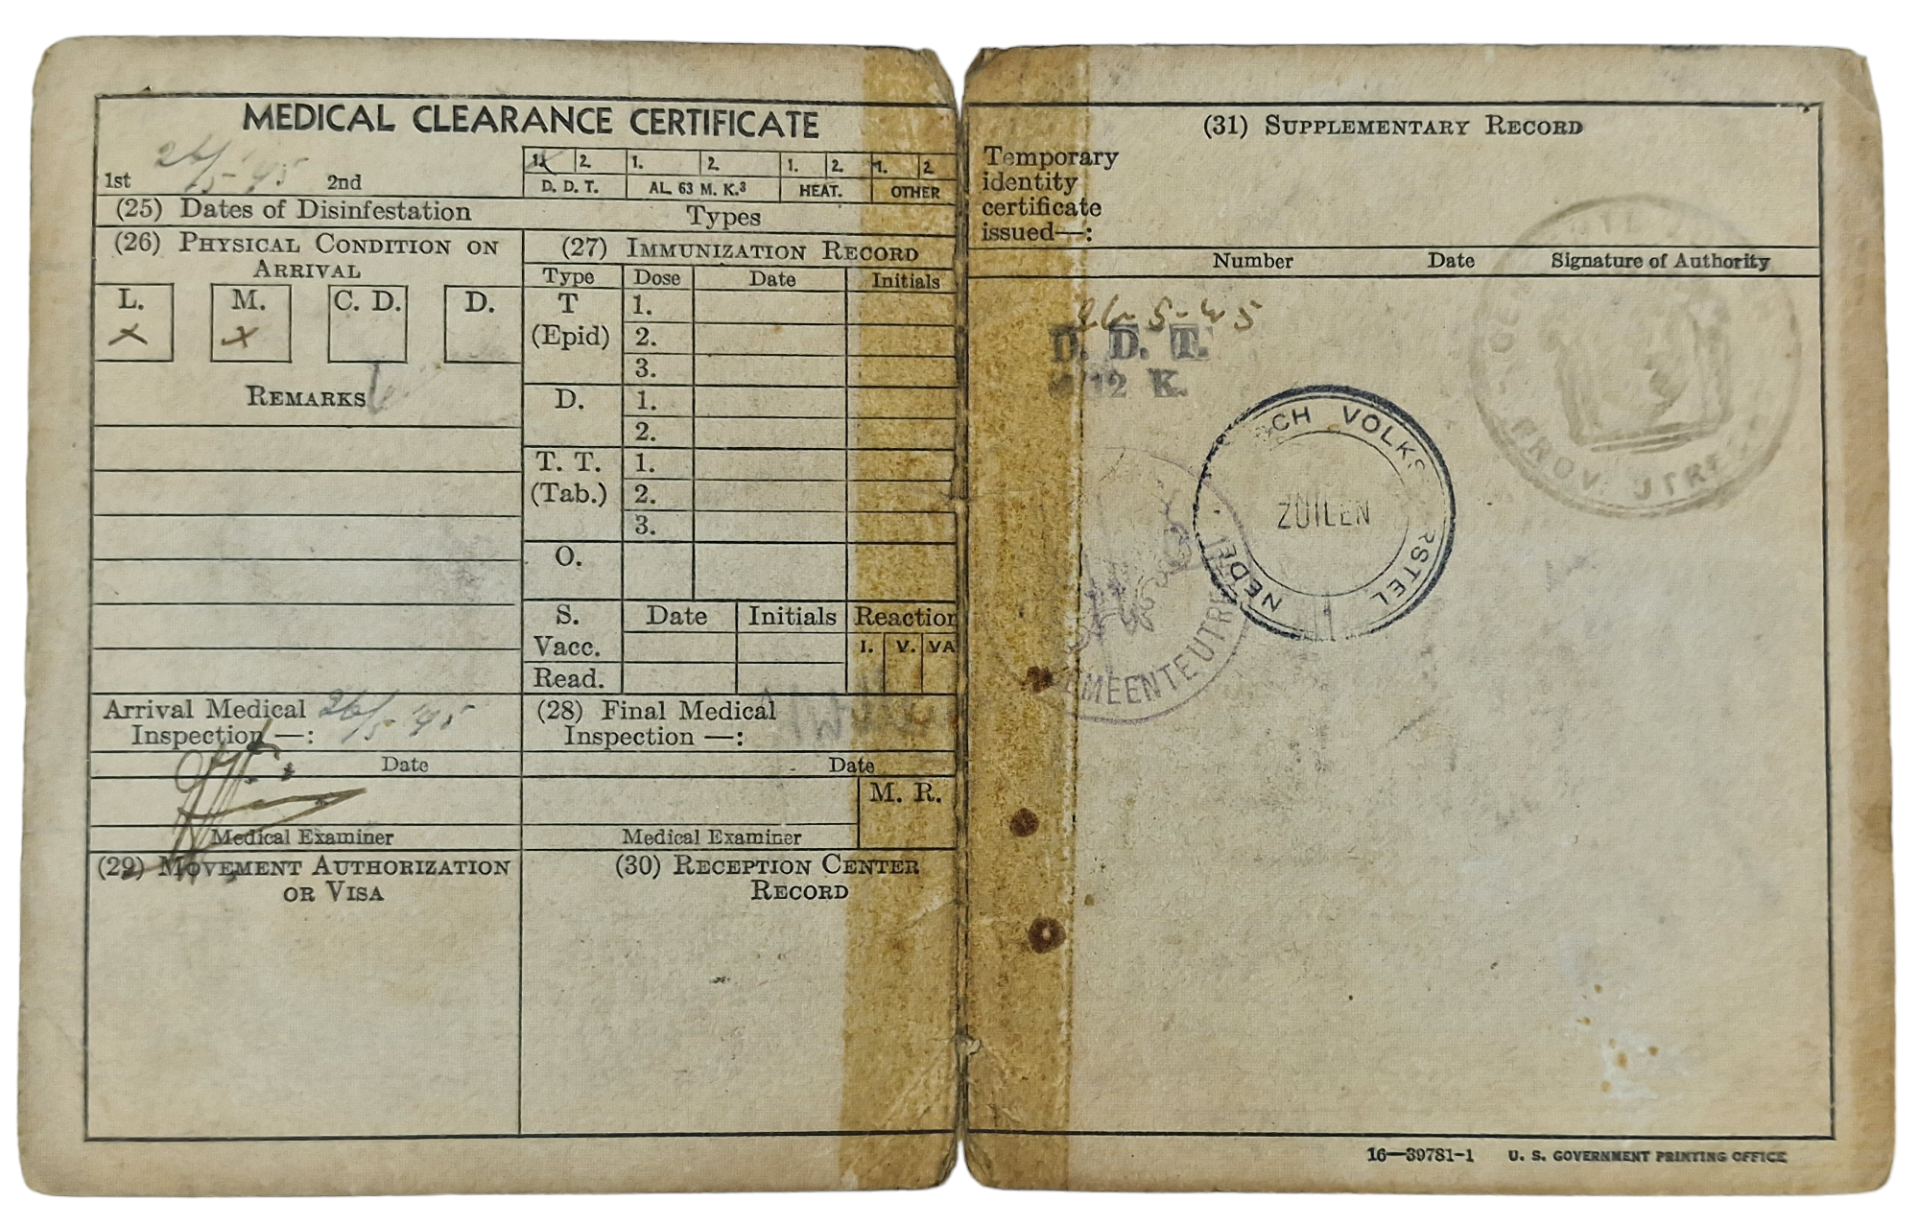 MEDICAL CLEARANCE CERTIFICATE
1st 26/5-45 2nd
1. 2. 1. 2. 1. 2. 1. 2.
D. D. T. AL. 63 M. K.³ HEAT. OTHER
(25) Dates of Disinfestation Types
(26) PHYSICAL CONDITION ON
ARRIVAL
L. M. C. D. D.
x x
REMARKS
(27) IMMUNIZATION RECORD
Type Dose Date Initials
T 1.
(Epid) 2.
3.
D. 1.
2.
T. T. 1.
(Tab.) 2.
3.
O.
S. Date Initials Reaction
Vacc. I. V. VA
Read.
Arrival Medical 26/5-45
Inspection —:
Date
Medical Examiner
(28) Final Medical
Inspection —:
Date
M. R.
Medical Examiner
(29) MOVEMENT AUTHORIZATION
OR VISA
(30) RECEPTION CENTER
RECORD
(31) SUPPLEMENTARY RECORD
Temporary
identity
certificate
issued—:
Number Date Signature of Authority
26-5-45
D. D. T.
12 K.
CH VOLKS RSTEL
NEDE
ZUILEN
PROV. UTRE
EMEENTE UTRE
16—39781-1 U. S. GOVERNMENT PRINTING OFFICE